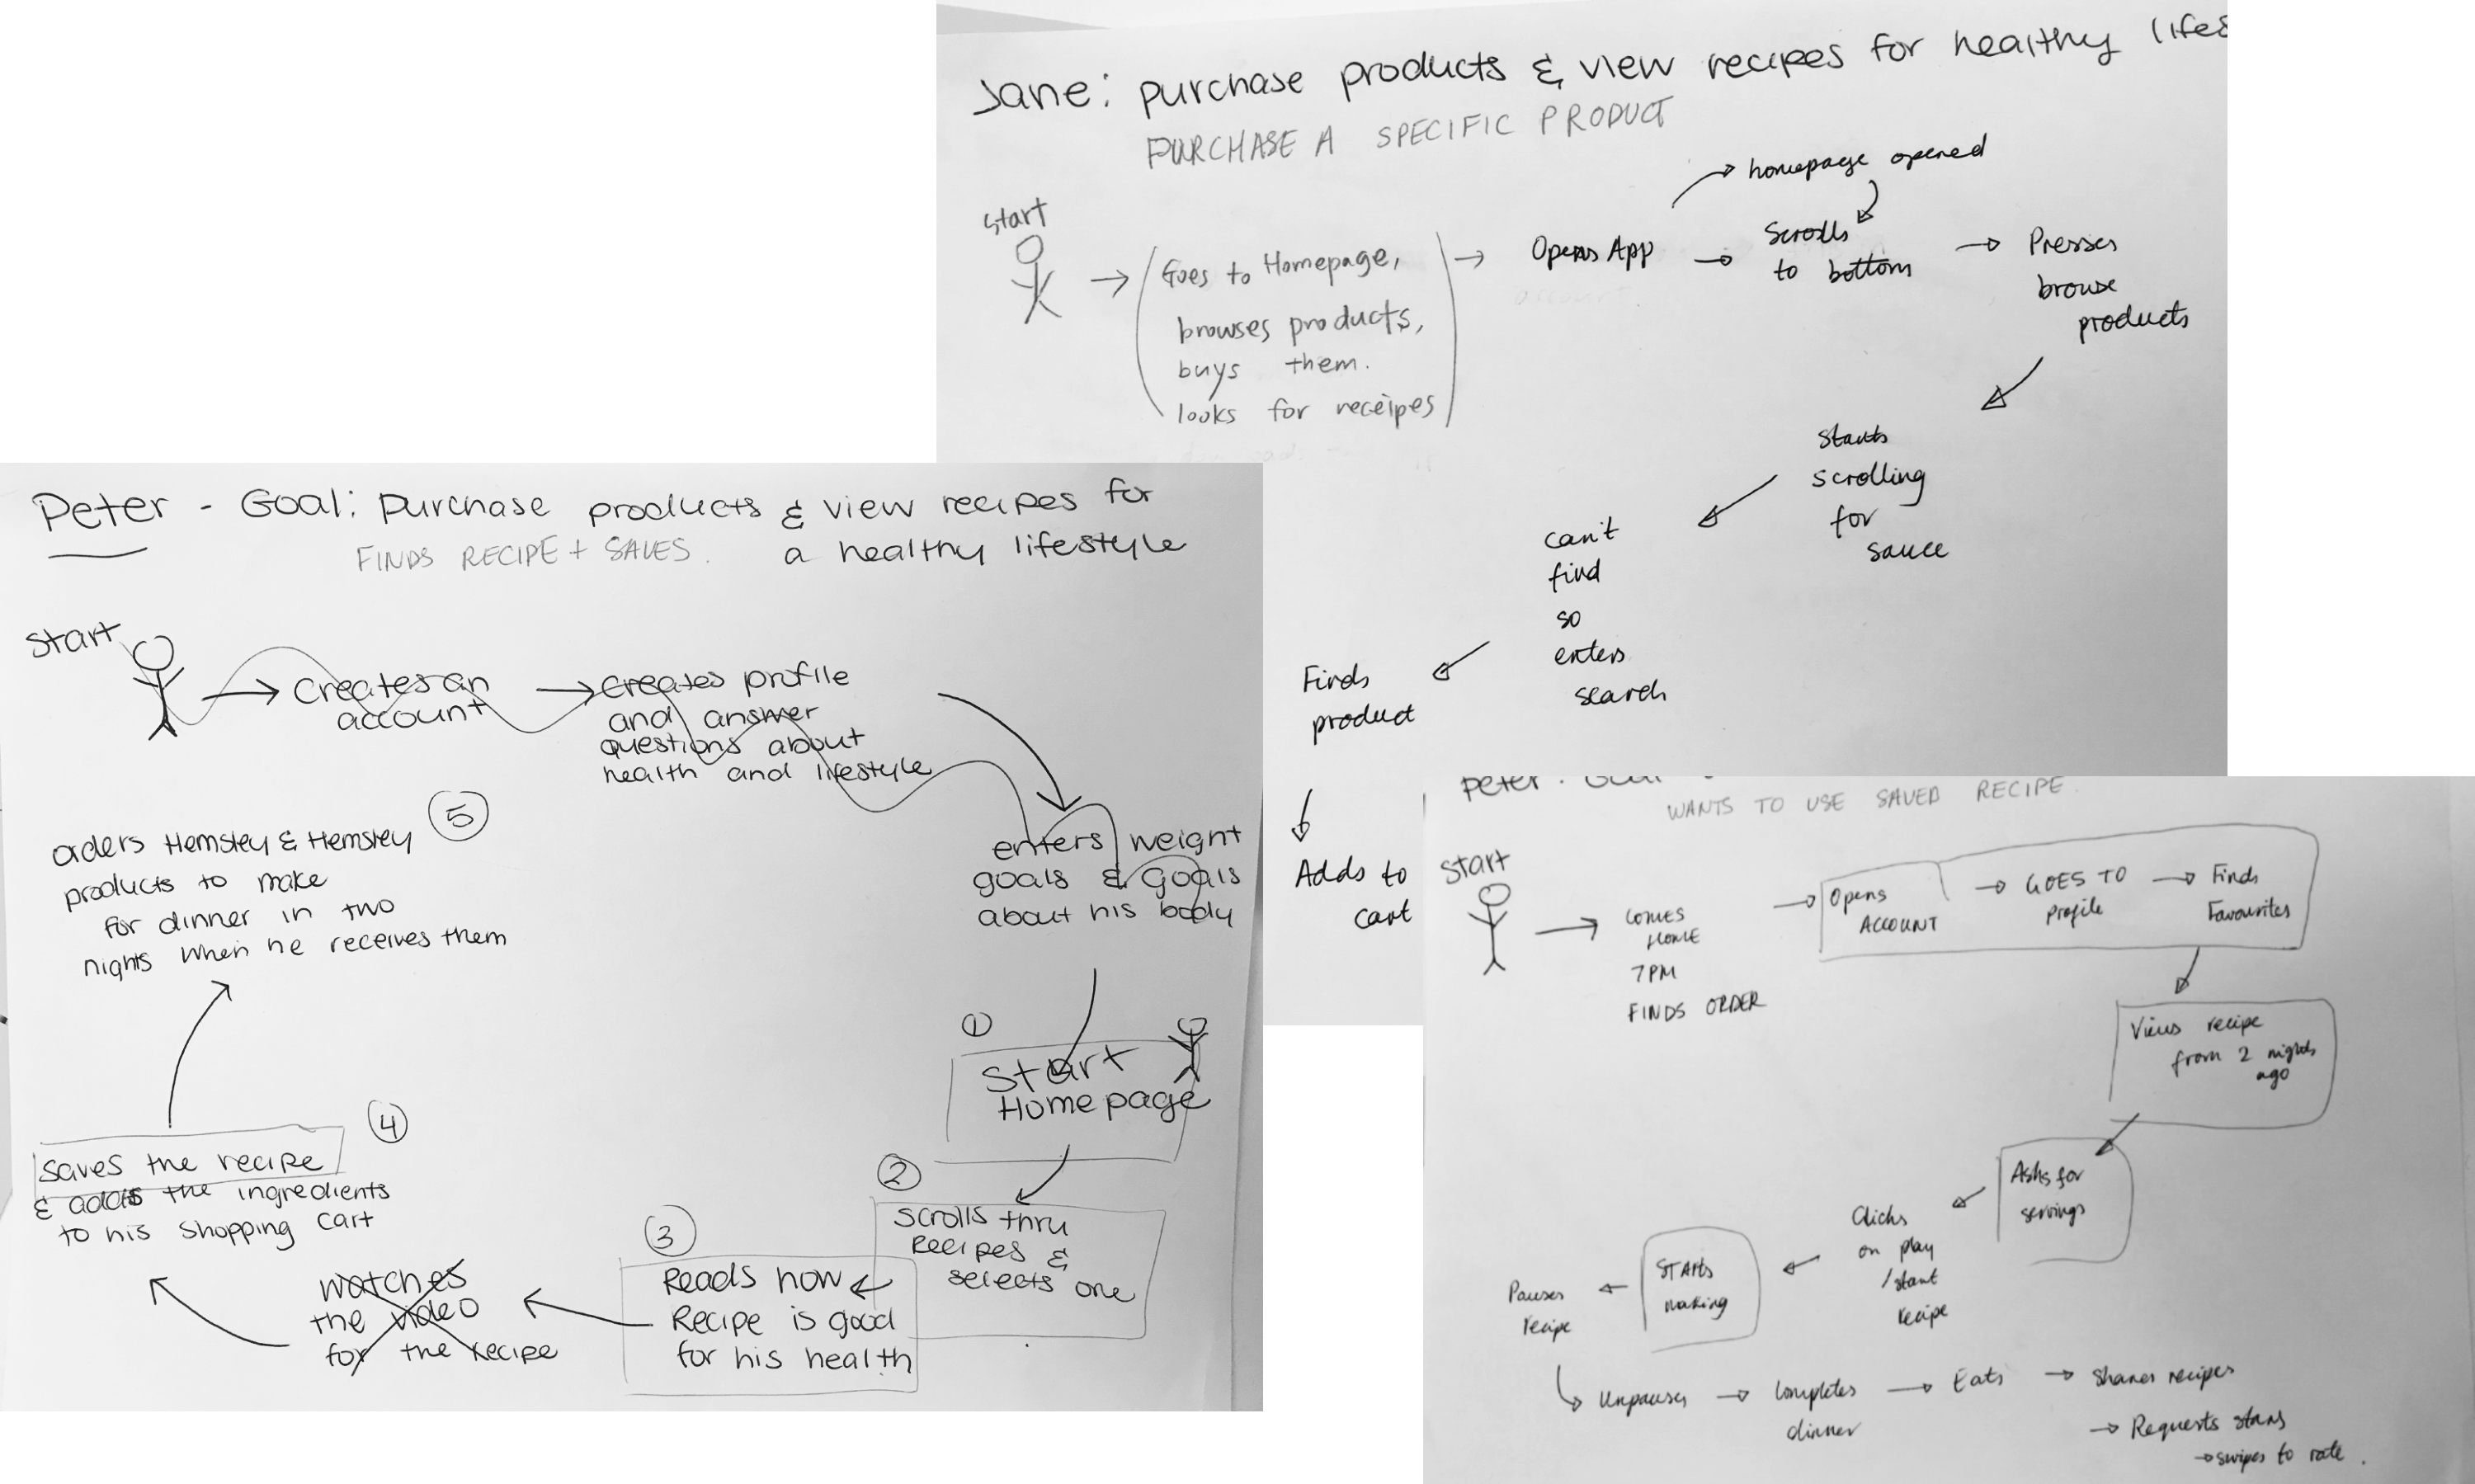 Jane: purchase products & view recipes for healthy lifes
PURCHASE A SPECIFIC PRODUCT
Start
Goes to Homepage,
browses products,
buys them.
looks for receipes
Opens App
homepage opened
Scrolls
to bottom
Presses
browse
products
Starts
scrolling
for
sauce
can't
find
so
enters
search
Finds
product
Adds to
cart
Peter - Goal: Purchase products & view recipes for
a healthy lifestyle
FINDS RECIPE + SAVES.
Start
Creates an
account
Creates profile
and answer
questions about
health and lifestyle
enters weight
goals & goals
about his body
1
Start
Homepage
2
Scrolls thru
Recipes &
selects one
3
Reads how
Recipe is good
for his health
watches
the video
for the recipe
4
saves the recipe
& adds the ingredients
to his shopping cart
5
orders Hemsley & Hemsley
products to make
for dinner in two
nights when he receives them
Peter. Goal
WANTS TO USE SAVED RECIPE
Start
COMES
HOME
7PM
FINDS ORDER
Opens
ACCOUNT
GOES TO
profile
Finds
Favourites
Views recipe
from 2 nights
ago
Asks for
servings
Clicks
on play
/start
recipe
STARTS
making
Pauses
recipe
Unpauses
Completes
dinner
Eats
Shares recipes
Requests stars
swipes to rate.